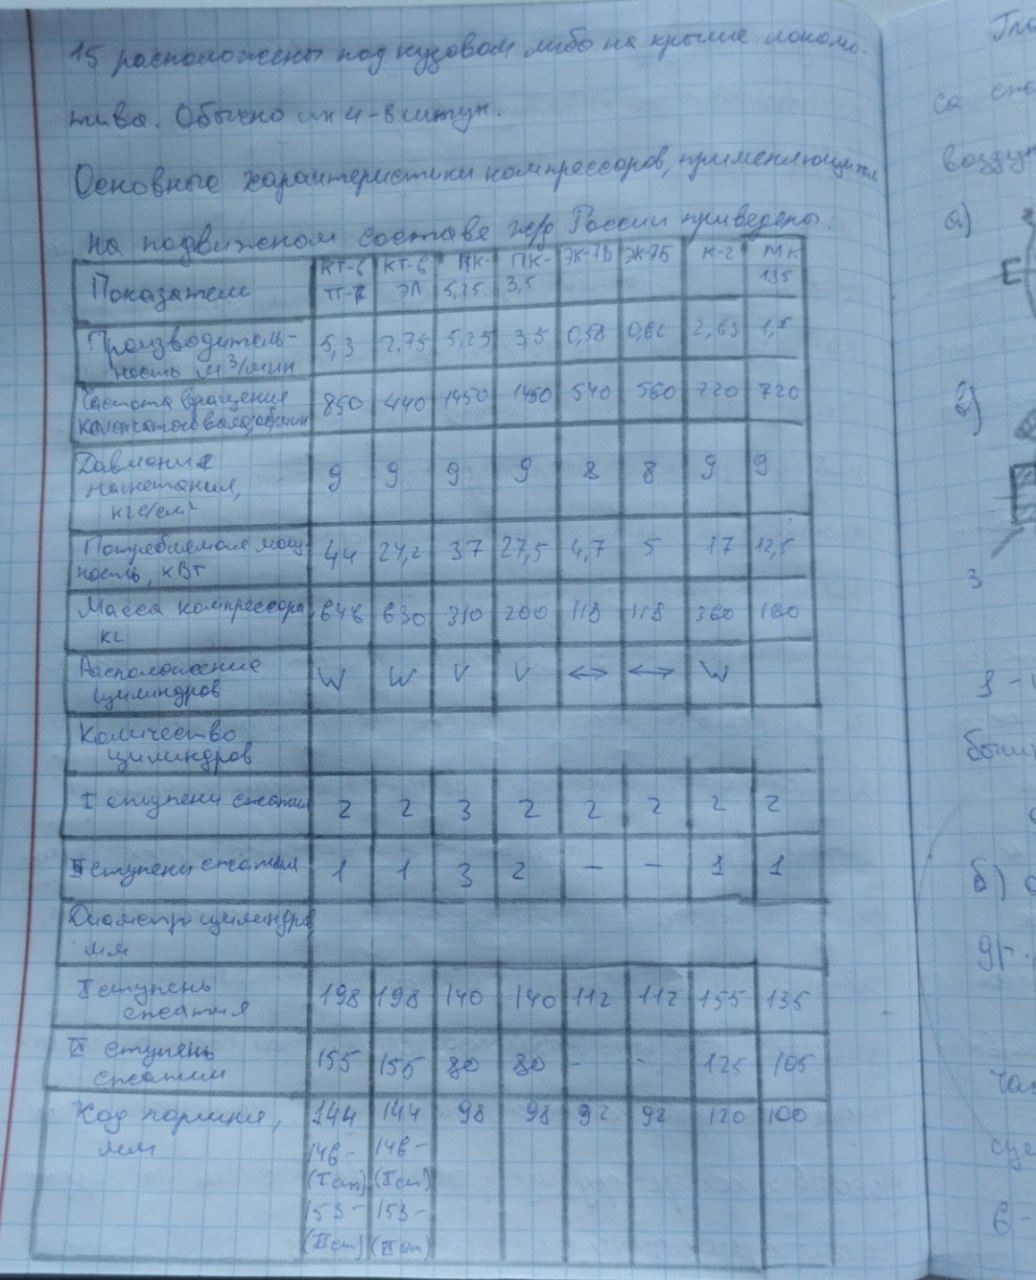 15 расположены под кузовом либо на крыше локомо-
тива. Обычно их 4-8 штук.
Основные характеристики компрессоров, применяющихся
на подвижном составе ж/д России приведены
Показатели КТ-6 КТ-6 ПК- ПК- ЭК-7В ЭК-7Б К-2 МК
ЭЛ 5,25 3,5 135
Производитель- 5,3 2,75 5,25 3,5 0,58 0,62 2,63
ность м³/мин
Частота вращения 850 440 1450 1450 540 560 720 720
коленчатого вала, об/мин
Давление 9 9 9 9 8 8 9 9
нагнетания,
кгс/см²
Потребляемая мощ- 44 24,2 37 27,5 4,7 5 17 12,5
ность, кВт
Масса компрессора 646 630 310 200 118 118 360 160
кг
Расположение W W V V ↔ ↔ W
цилиндров
Количество
цилиндров
I ступени сжатия 2 2 3 2 2 2 2 2
II ступени сжатия 1 1 3 2 - - 1 1
Диаметр цилиндра
мм
I ступень 198 198 140 140 112 112 155 135
сжатия
II ступень 155 155 80 80 - - 125 105
сжатия
Ход поршня, 144 144 98 98 92 92 120 100
мм
146- 146-
(I ст) (I ст)
153- 153-
(II ст) (II ст)
а)
Е
3
б)
6-